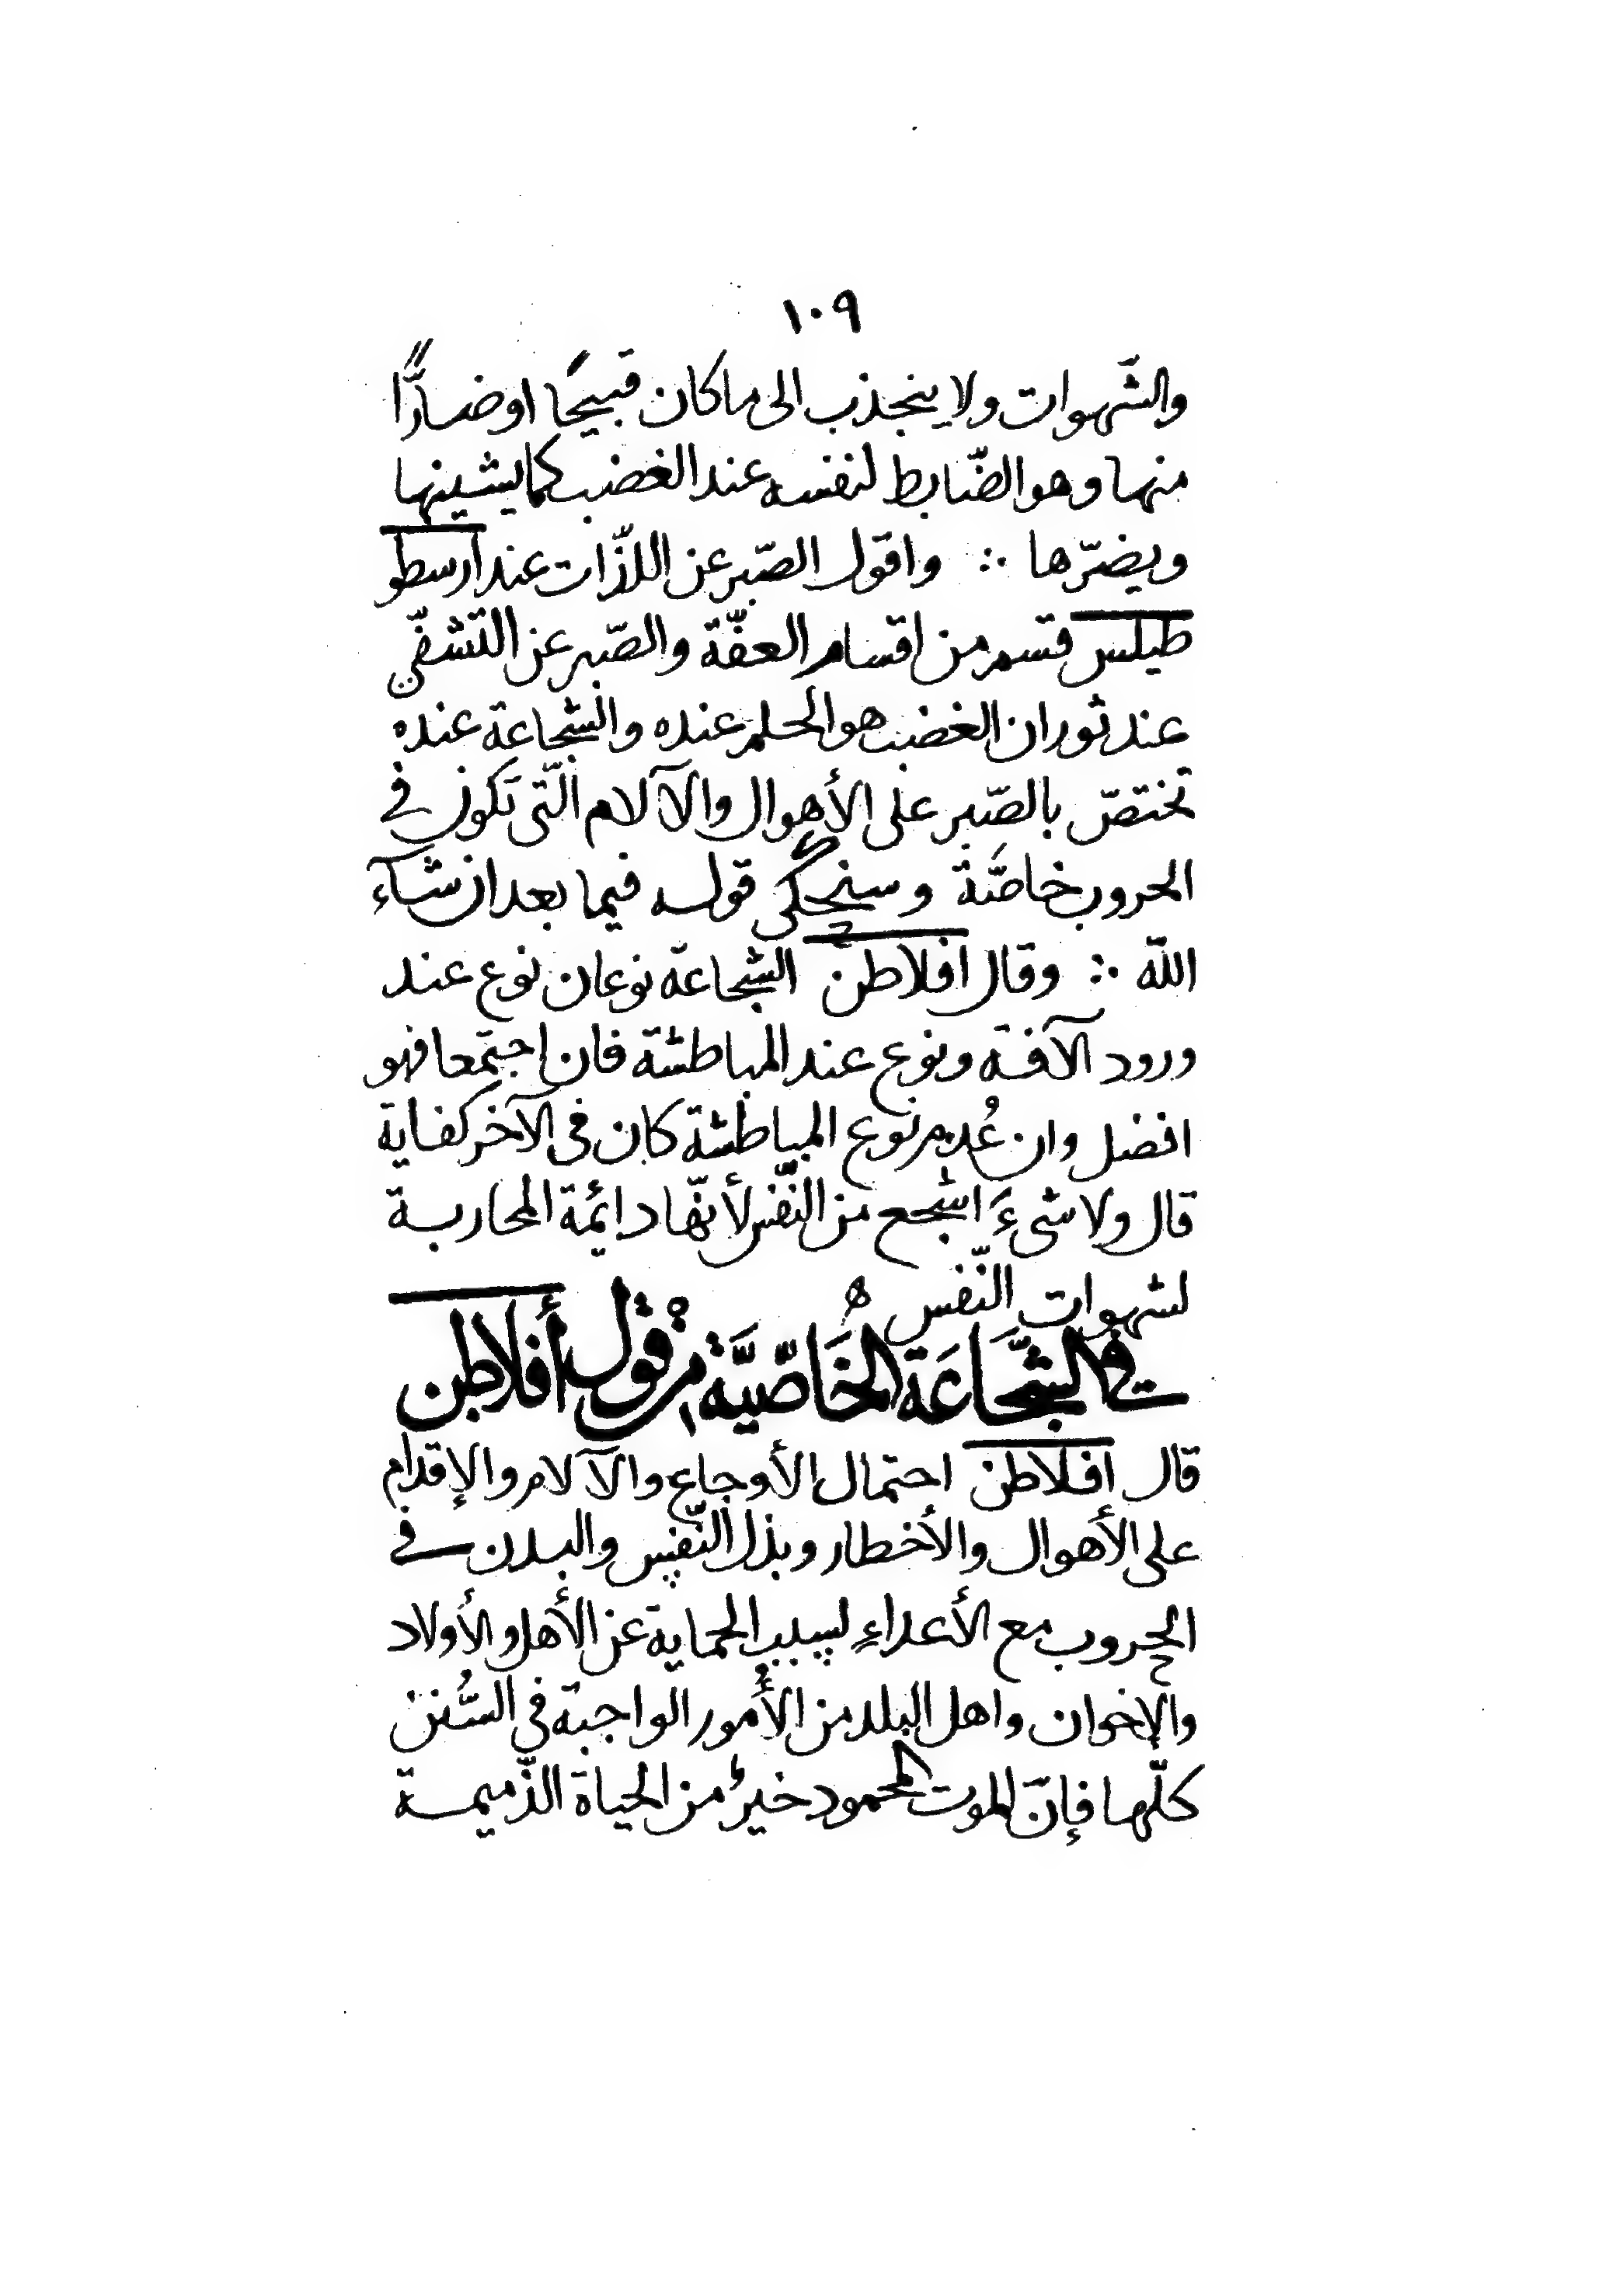 ١٠٩
والشّهوات ولا ينجذب الى ما كان قبيحًا او ضارًّا
منها وهو الضّابط لنفسه عند الغضب كما يشينها
ويضرّها ∴ واقول الصّبر عن اللذّات عند ارسطو
طيلس قسم من اقسام العفّة والصّبر عن التشفّي
عند ثوران الغضب هو الحلم عنده والشّجاعة عنده
تختصّ بالصّبر على الأهوال والآلام الّتى تكون فى
الحروب خاصَّة وسنحكى قوله فيما بعد ان شآء
اللّه ∴ وقال افلاطن الشجاعة نوعان نوع عند
ورود الآفة ونوع عند المباطشة فان اجتمعا فهو
افضل وان عُدم نوع المباطشة كان فى الآخر كفاية
قال ولا شىءَ اشجع من النّفس لأنّها دائمة المحاربة
لشهوات النّفس ه
فى الشَّجَاعَة الخَاصّيَّة من قول أفلاطن
قال افلاطن احتمال الأوجاع والآلام والإقدام
على الأهوال والأخطار وبذل النّفس والبدن فى
الحروب مع الأعداءِ لسبب الحماية عن الأهل والأولاد
والإخوان واهل البلد من الأُمور الواجبة فى السُّنن
كلّها فإنّ الموت المحمود خيرٌ من الحياة الذّميمة